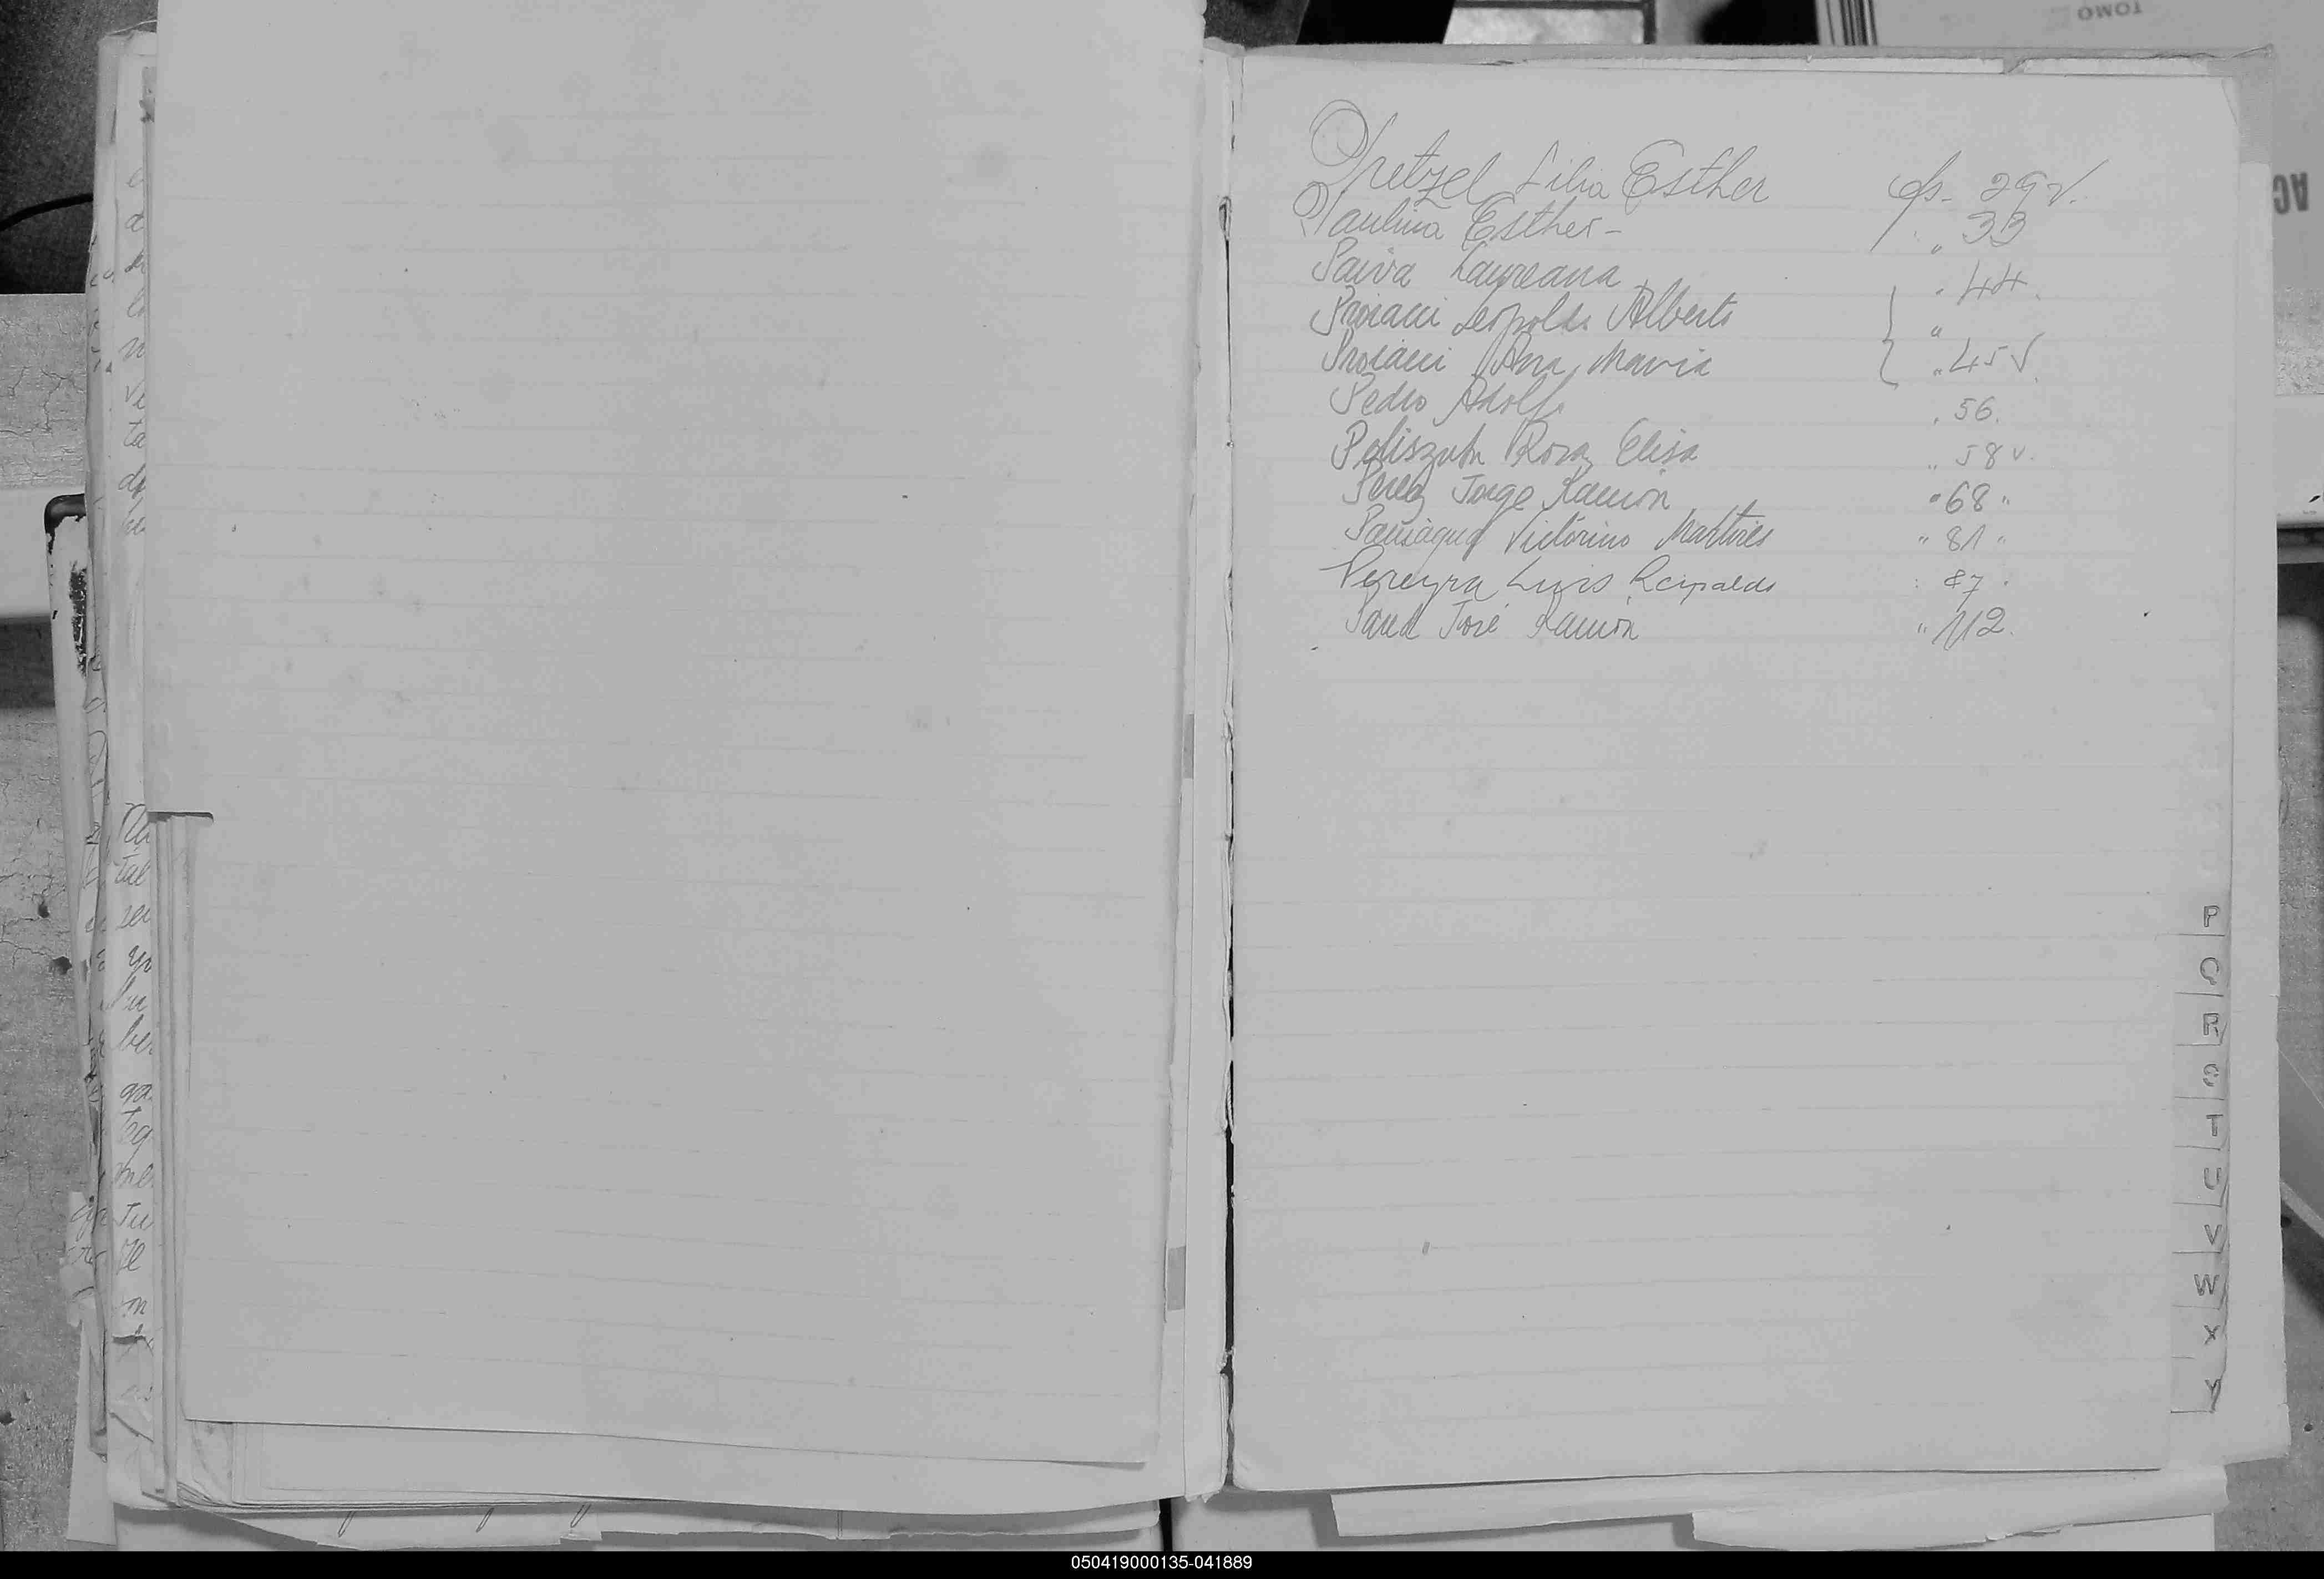 Pretzel Lilia Esther fs. 29 v.
Paulina Esther - " 33
Paiva Laureana " 44.
Proiacci Leopoldo Alberto "
Proiacci Ana María " 45 v.
Pedro Adolfo " 56.
Rosa Elisa " 58 v.
Perez Jorge Ramón " 68 "
Paniagua Victorino Martires " 81 "
Pereyra Luis Reinaldo : 87 .
José Ramón " 112.
P
Q
R
S
T
U
V
W
X
Y
TOMO
050419000135-041889